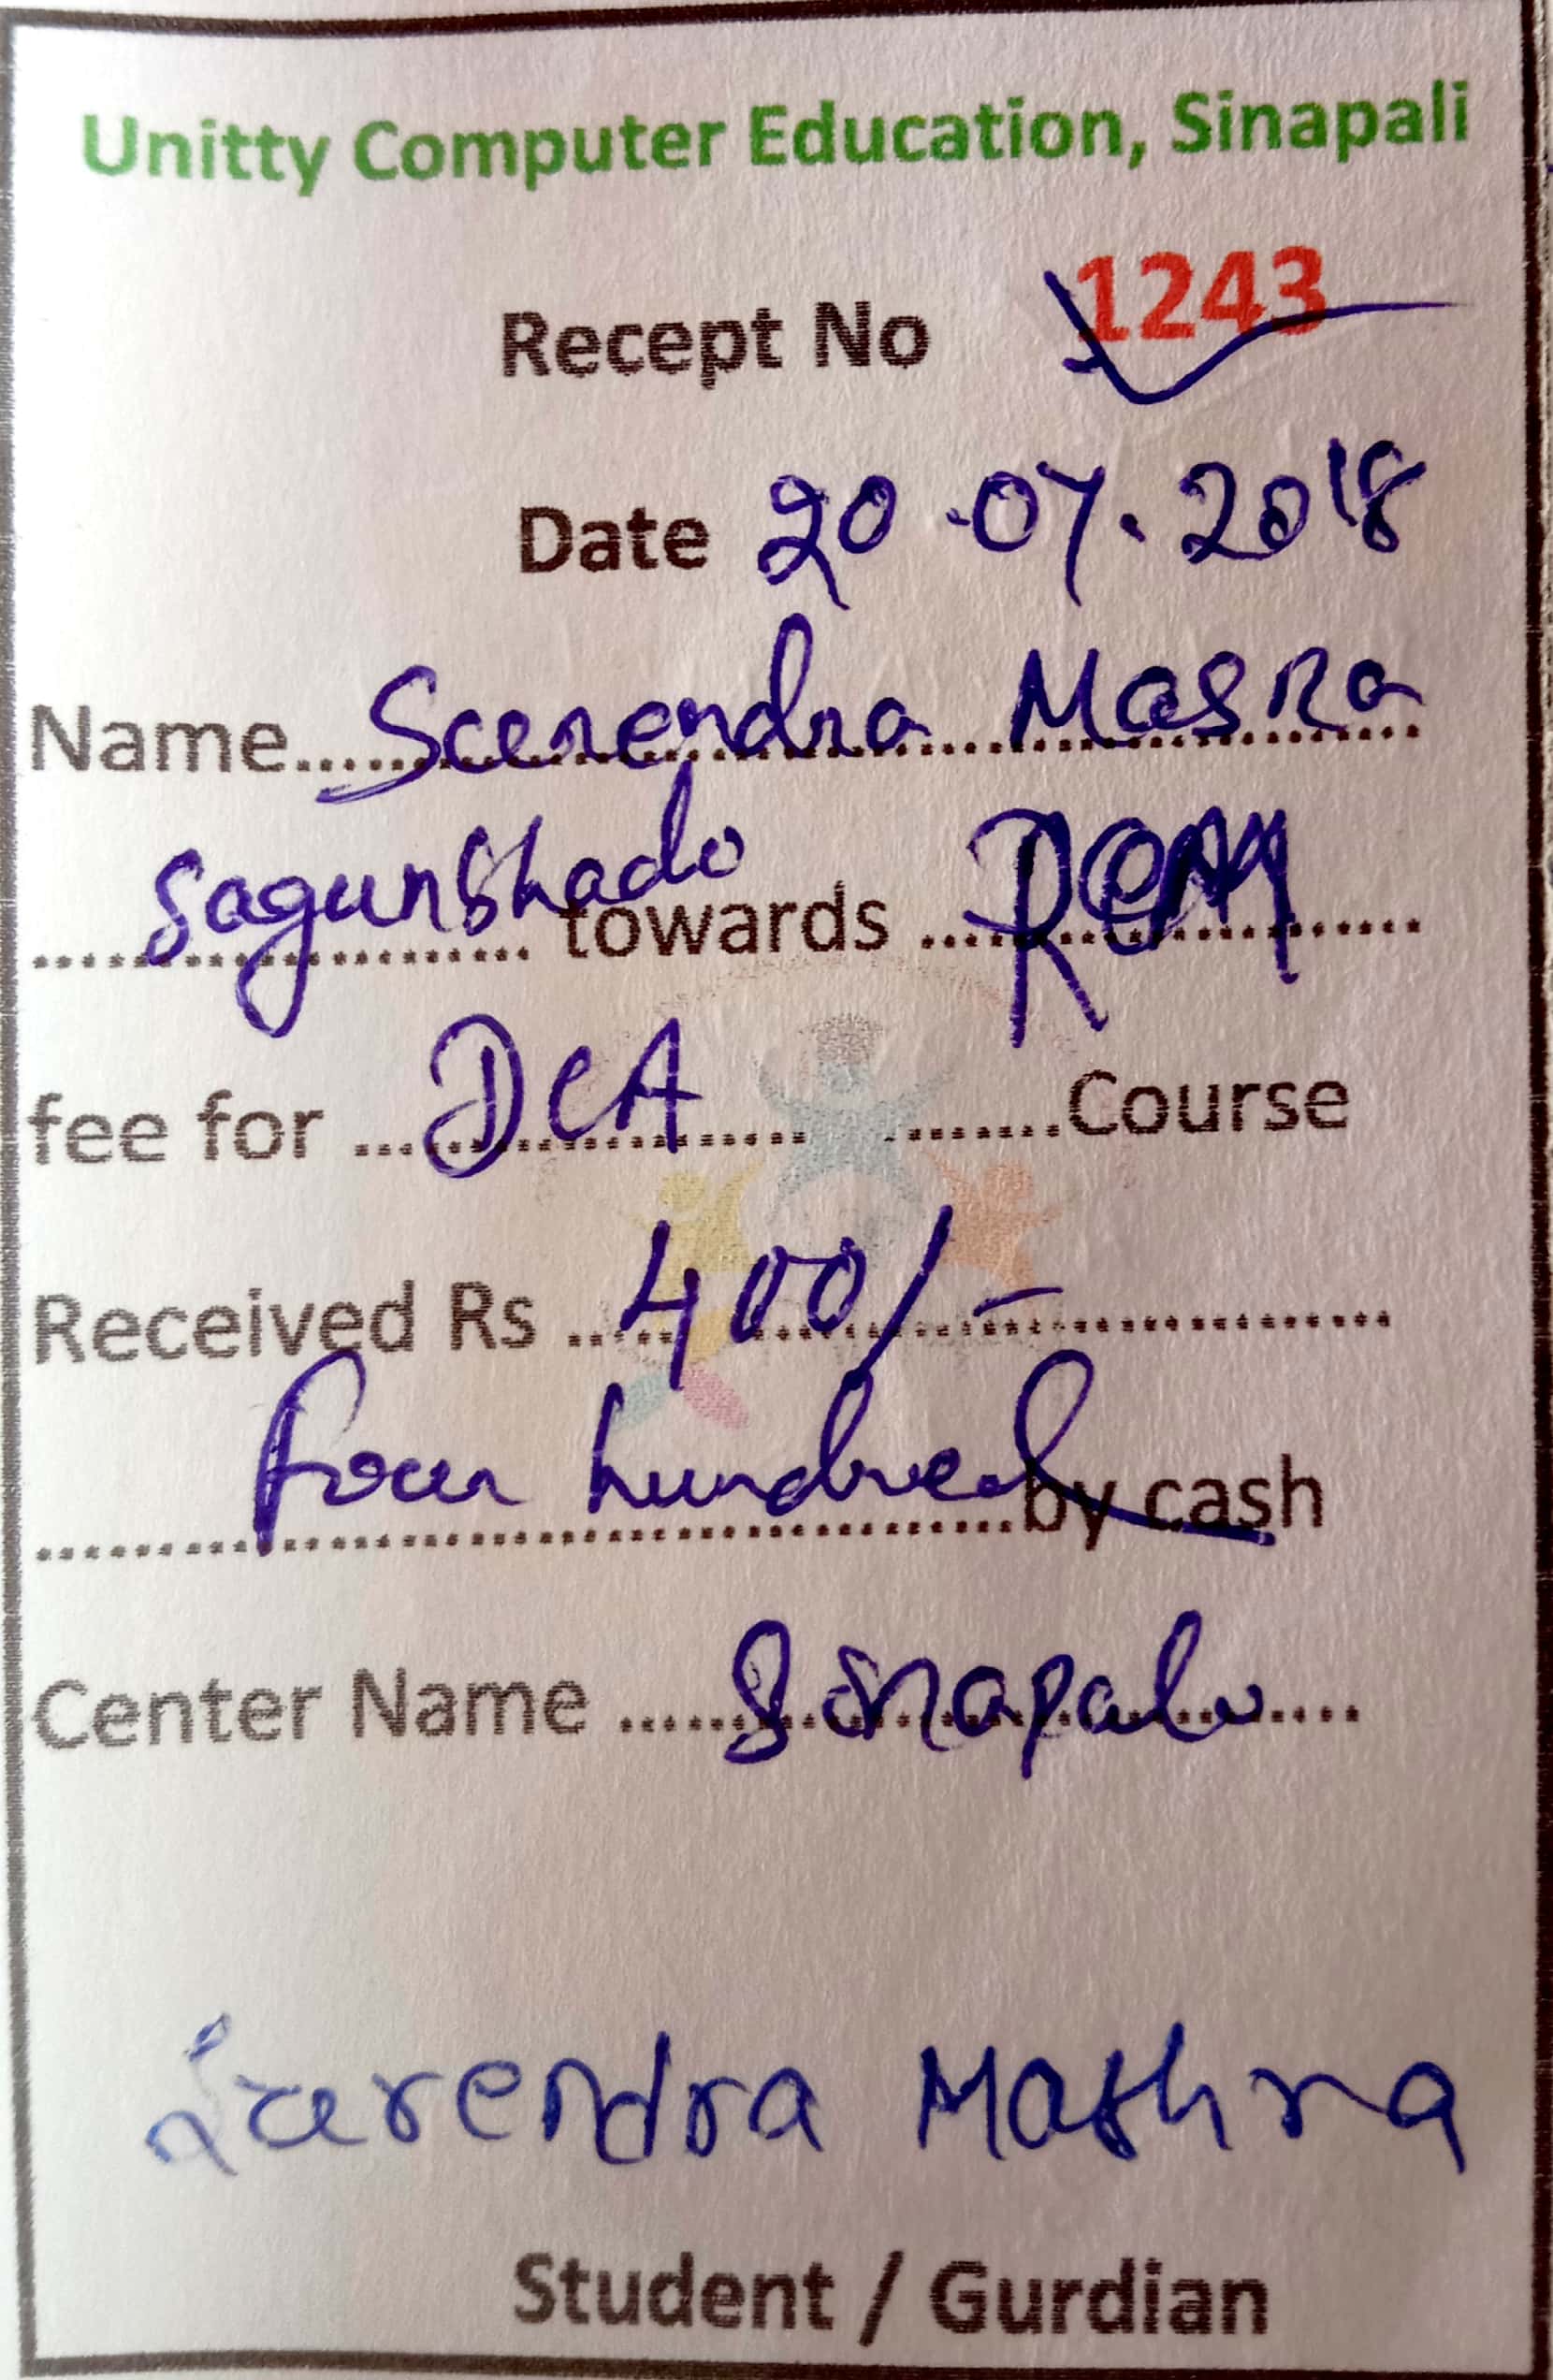 Unitty Computer Education, Sinapali
Recept No 1243
Date 20.07.2018
Name Surendra Masra
Sagunbhadi towards
fee for DCA Course
Received Rs 400/-
four hundred by cash
Center Name Sinapali
Surendra Mashra
Student / Gurdian